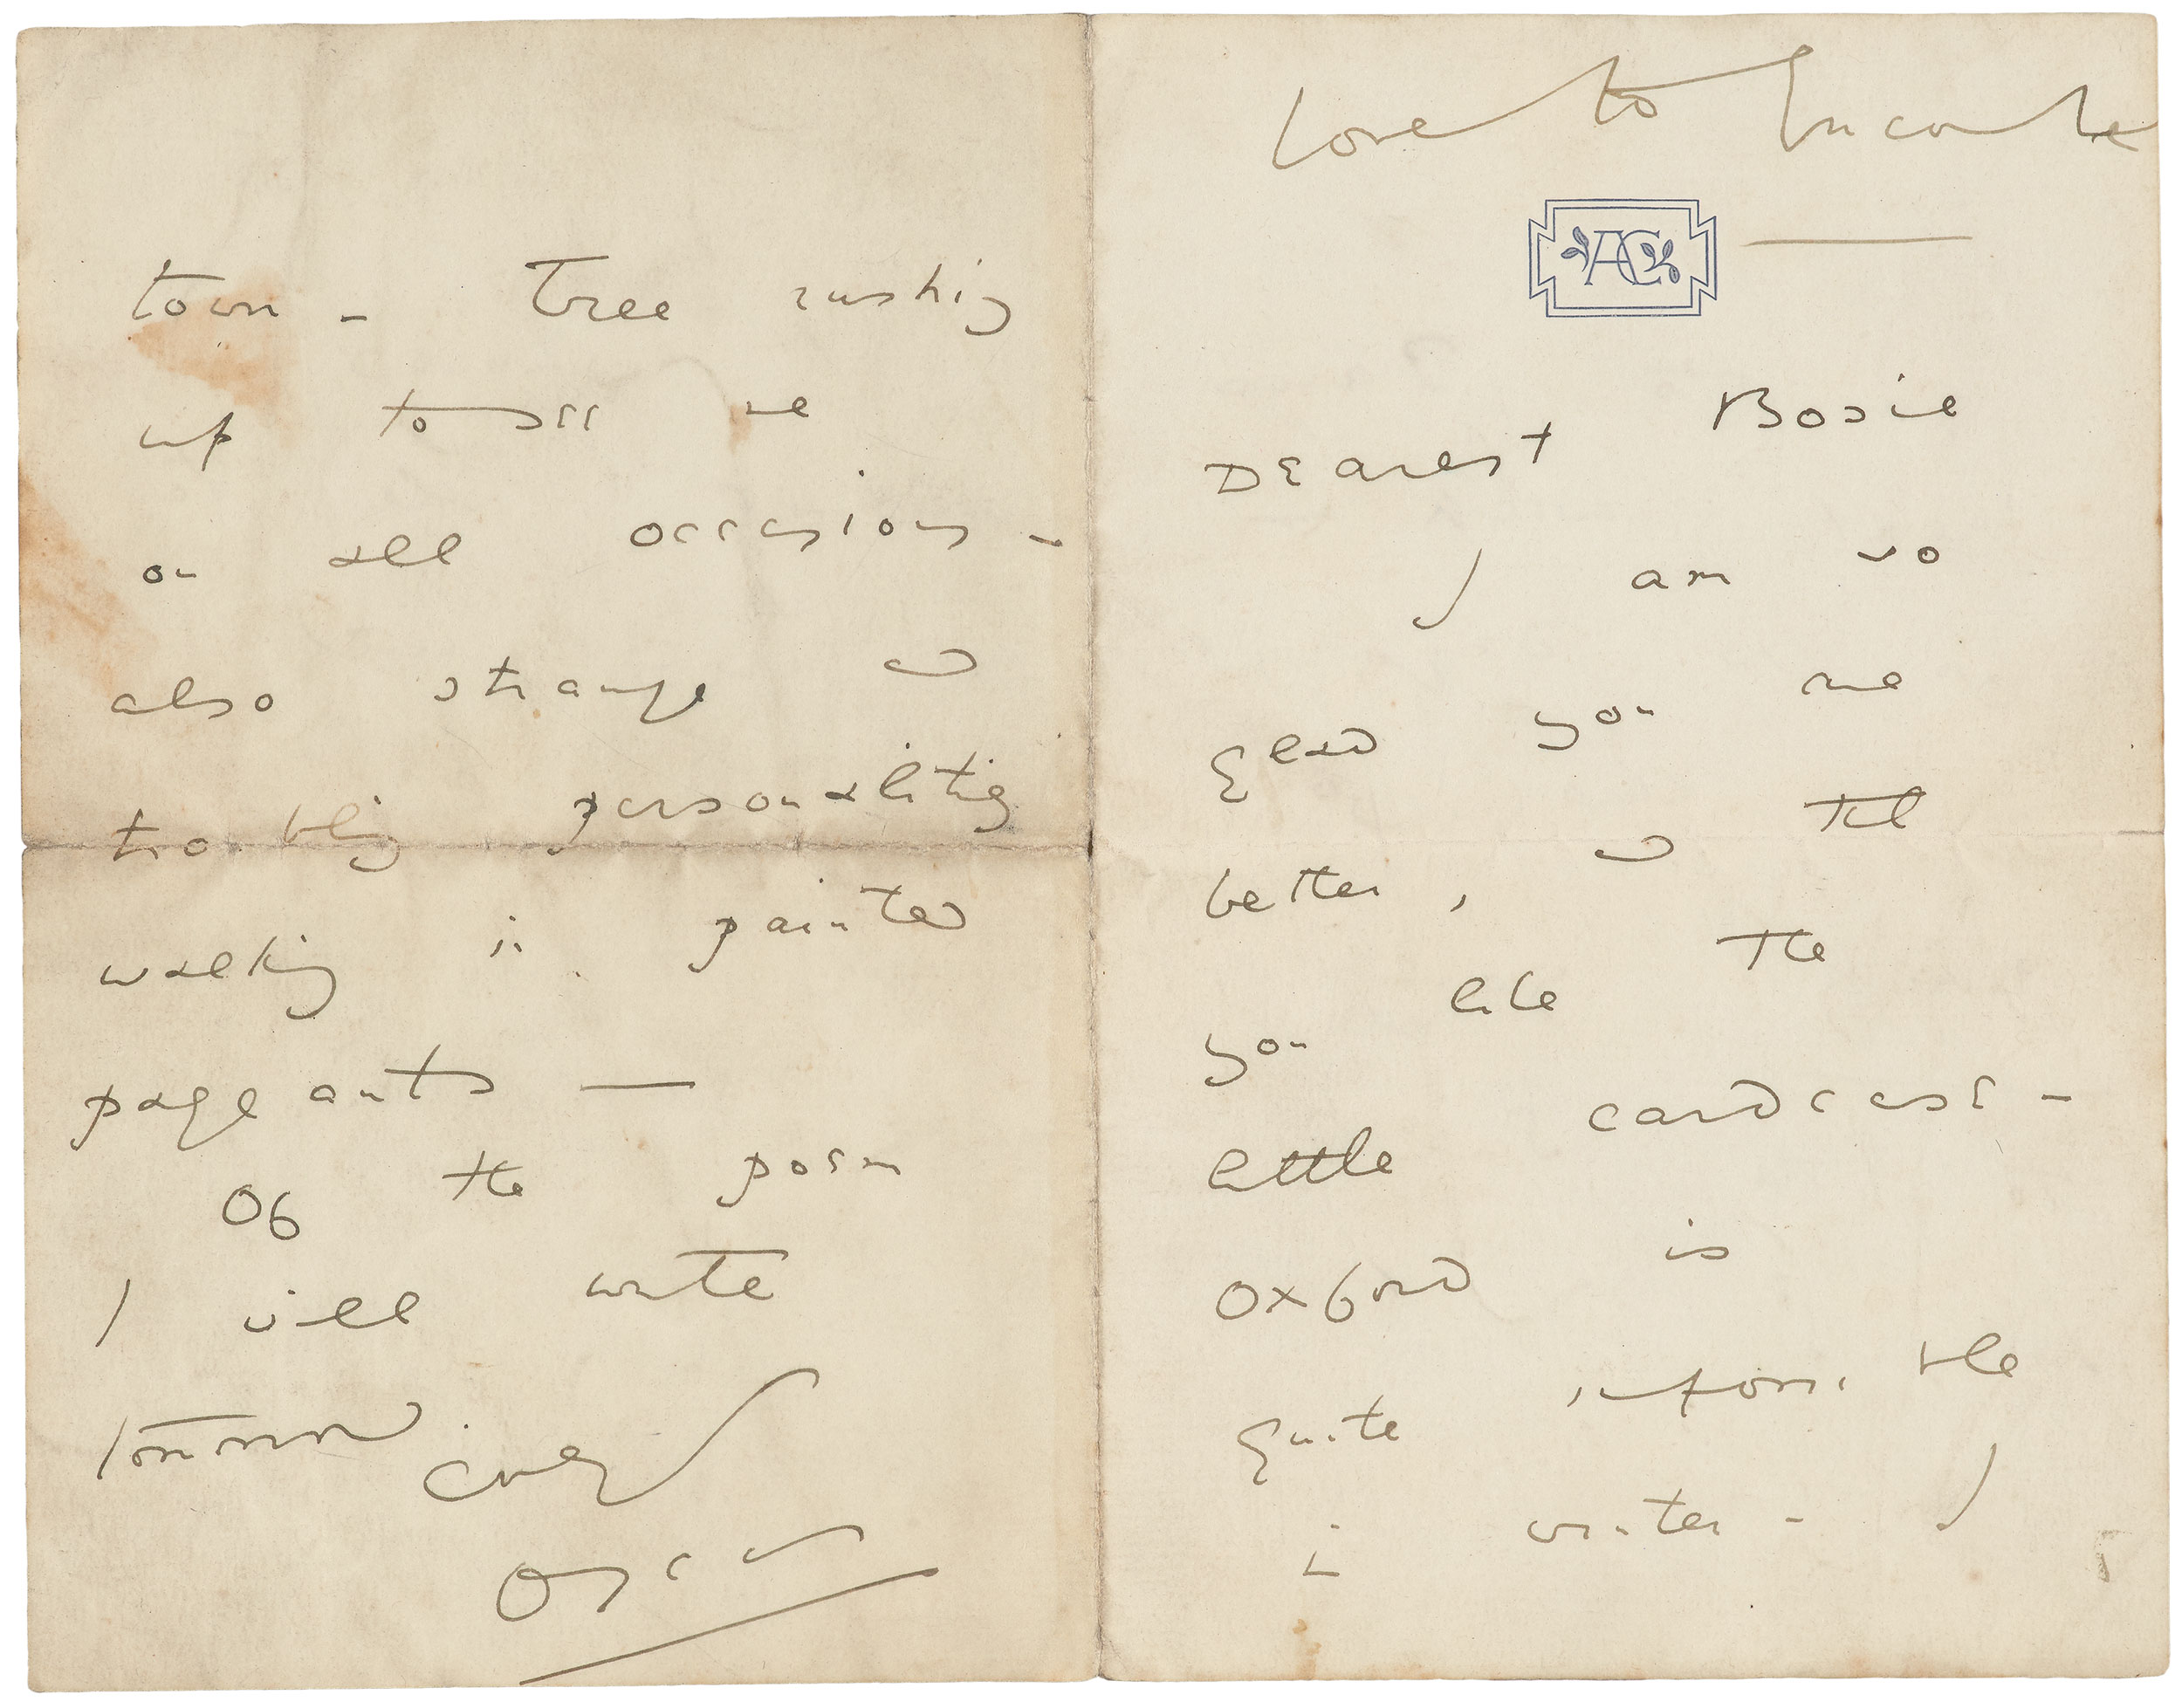 Love to Encombe
AC
Dearest Bosie
I am so
glad you are
better, & that
you like the
little cardcase -
Oxford is
quite impossible
in winter - I
town - Tree rushing
up to see me
on all occasions -
also strange &
troubling personalities
walking in painted
pageants —
Of the poem
I will write
tomorrow
Oscar